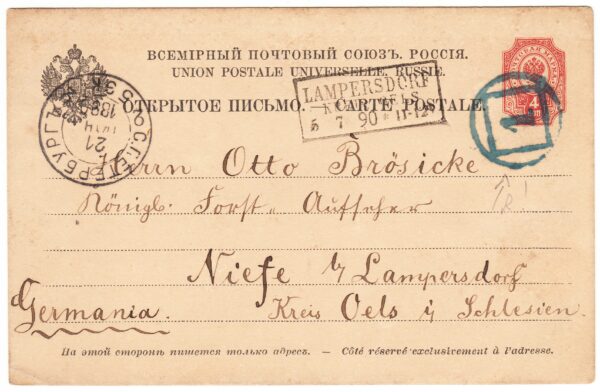 ВСЕМІРНЫЙ ПОЧТОВЫЙ СОЮЗЪ. РОССІЯ.
UNION POSTALE UNIVERSELLE. RUSSIE.
ОТКРЫТОЕ ПИСЬМО. — CARTE POSTALE.
ПОЧТОВАЯ МАРКА
4
LAMPERSDORF
5 7 90 * 11-12
С.ПЕТЕРБУРГЪ
21
2
Herrn Otto Brösicke
Königl. Forst-Aufseher
Niefe b/ Lampersdorf
Germania. Kreis Oels i/ Schlesien.
На этой сторонѣ пишется только адресъ. — Côté réservé exclusivement à l'adresse.